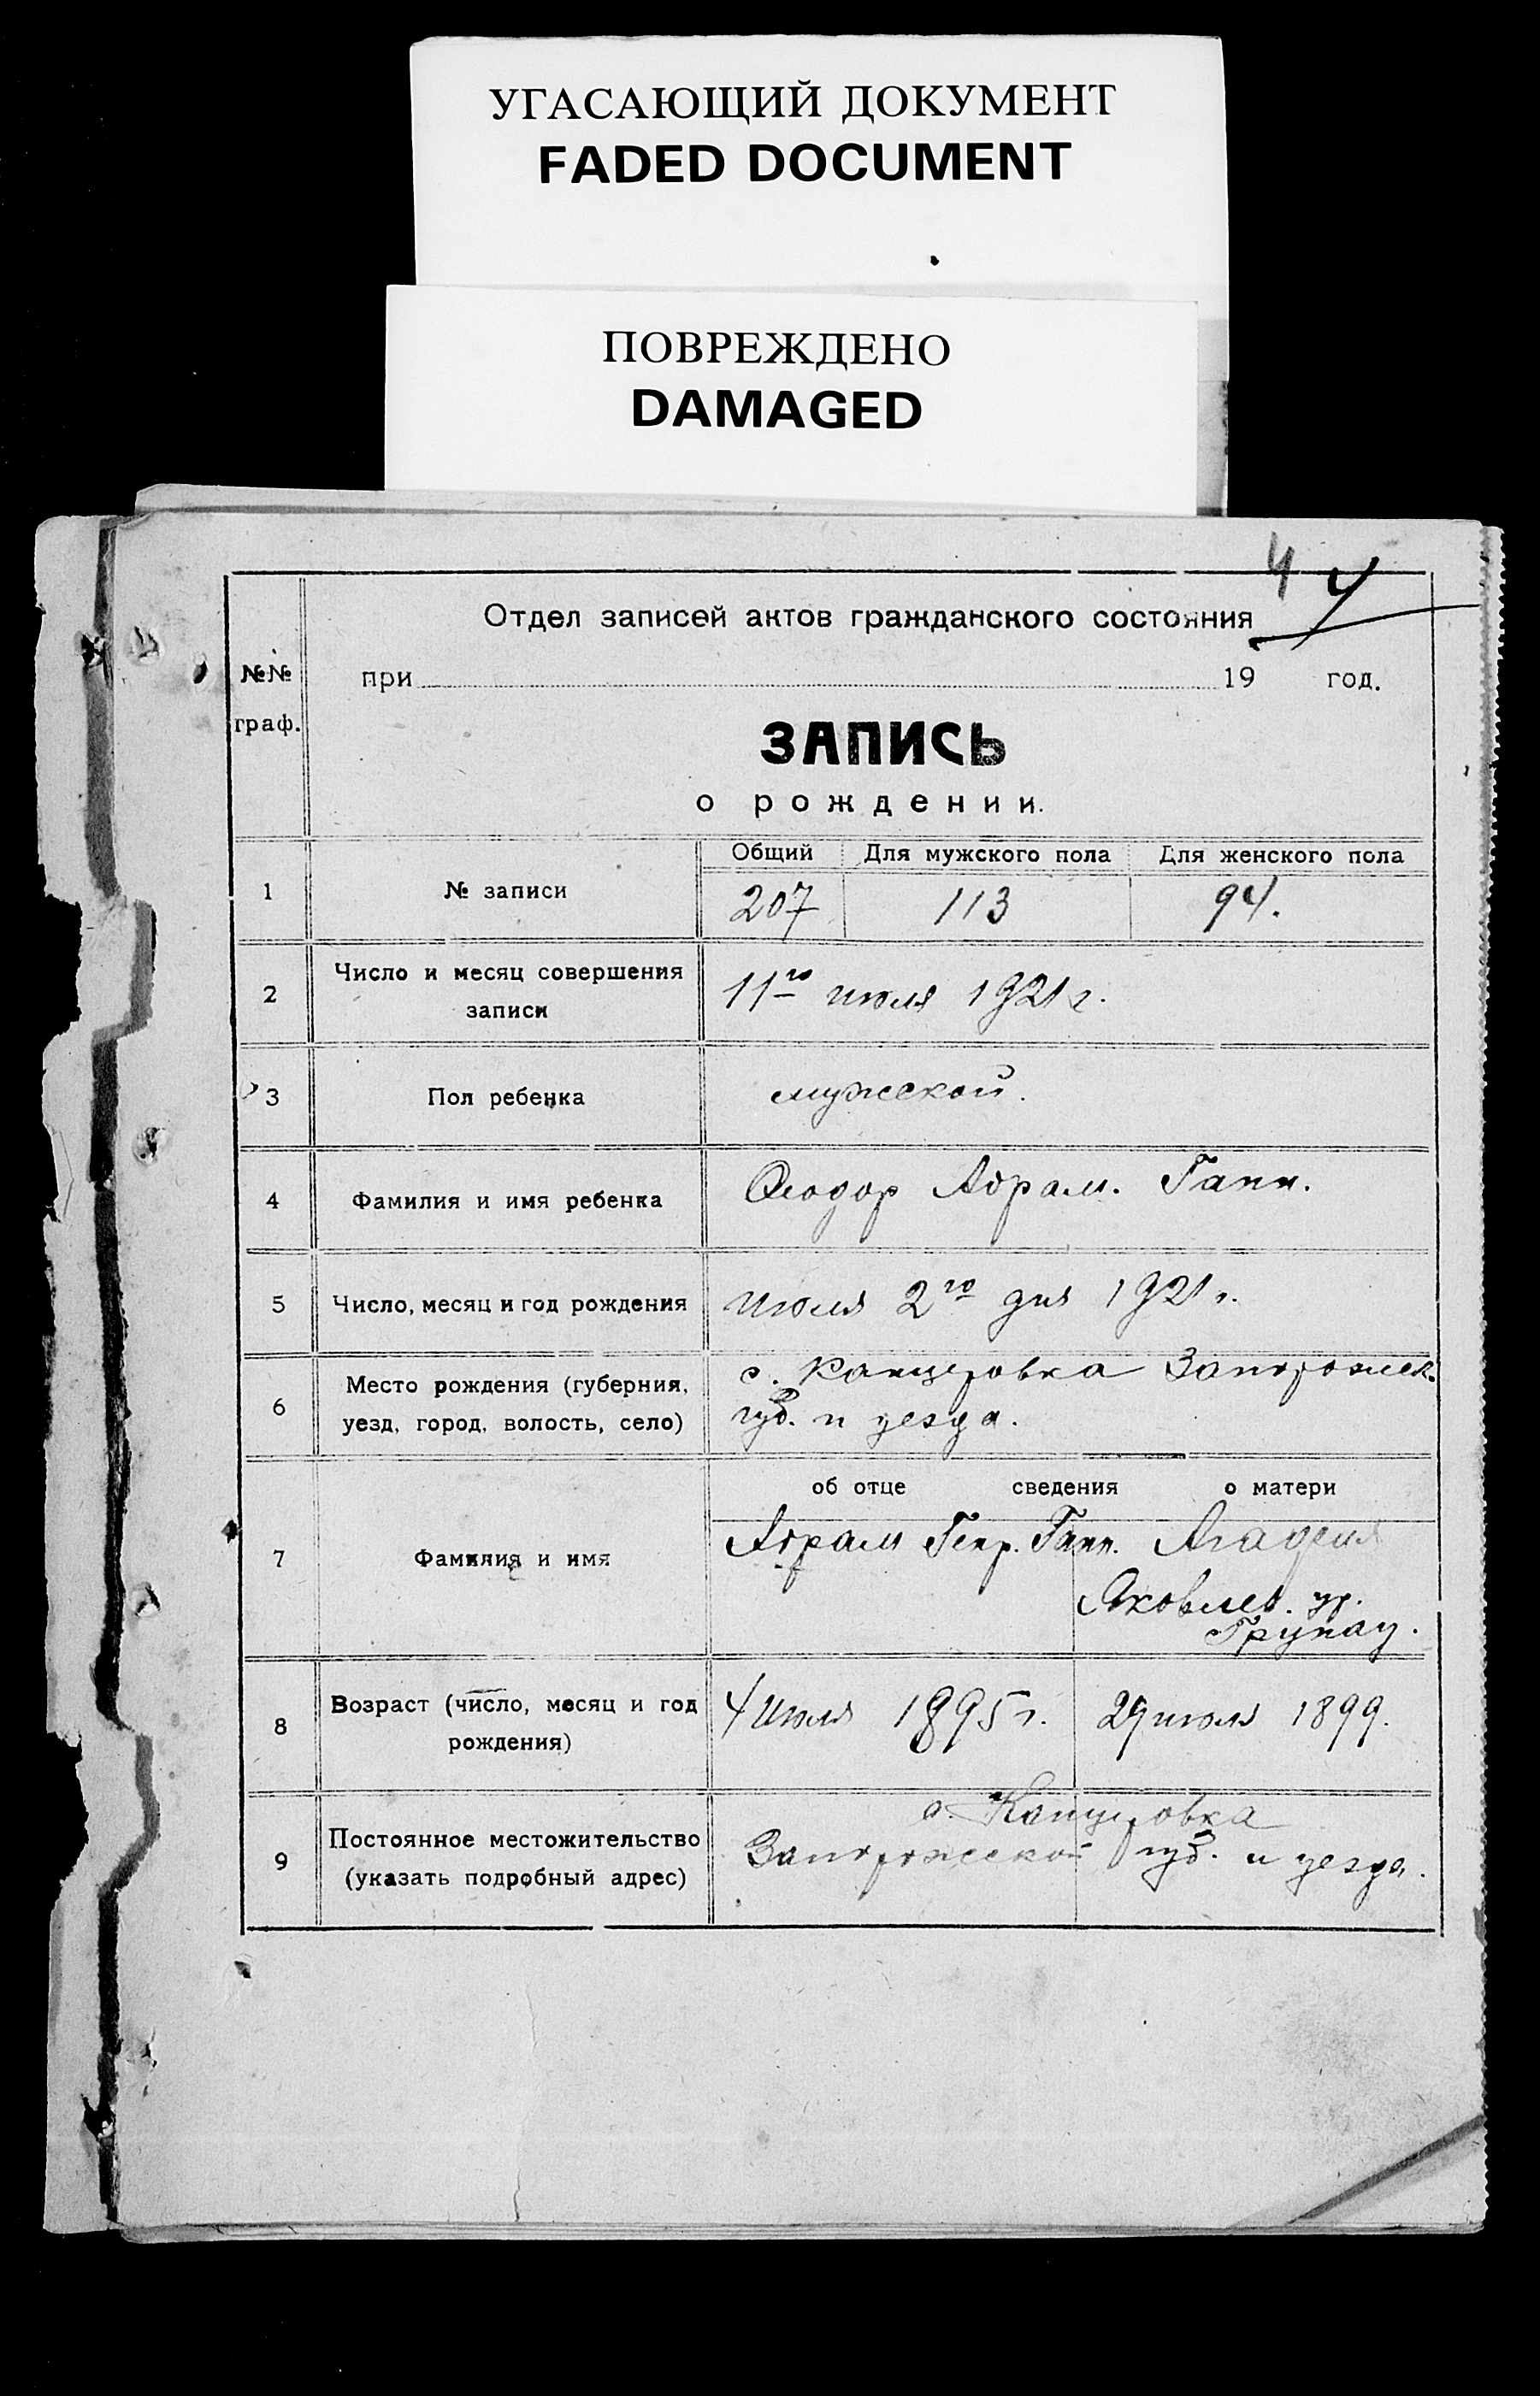 УГАСАЮЩИЙ ДОКУМЕНТ
FADED DOCUMENT
ПОВРЕЖДЕНО
DAMAGED
4 4
Отдел записей актов гражданского состояния
№№ граф.
при 19 год.
ЗАПИСЬ
о рождении.
Общий Для мужского пола Для женского пола
1 № записи 207 113 94.
2 Число и месяц совершения записи 11го июля 1921 г.
3 Пол ребенка мужской.
4 Фамилия и имя ребенка Феодор Абрам. Ганн.
5 Число, месяц и год рождения июля 2го дня 1921 г.
6 Место рождения (губерния, с. Канцеровка Запорожск.
уезд, город, волость, село) губ. и уезда.
об отце сведения о матери
7 Фамилия и имя Абрам Генр. Ганн.
Яковлев. ур.
Грунау.
8 Возраст (число, месяц и год рождения) 4 июля 1895 г. 29 июля 1899.
с. Канцеровка
9 Постоянное местожительство Запорожской губ. и уезда.
(указать подробный адрес)